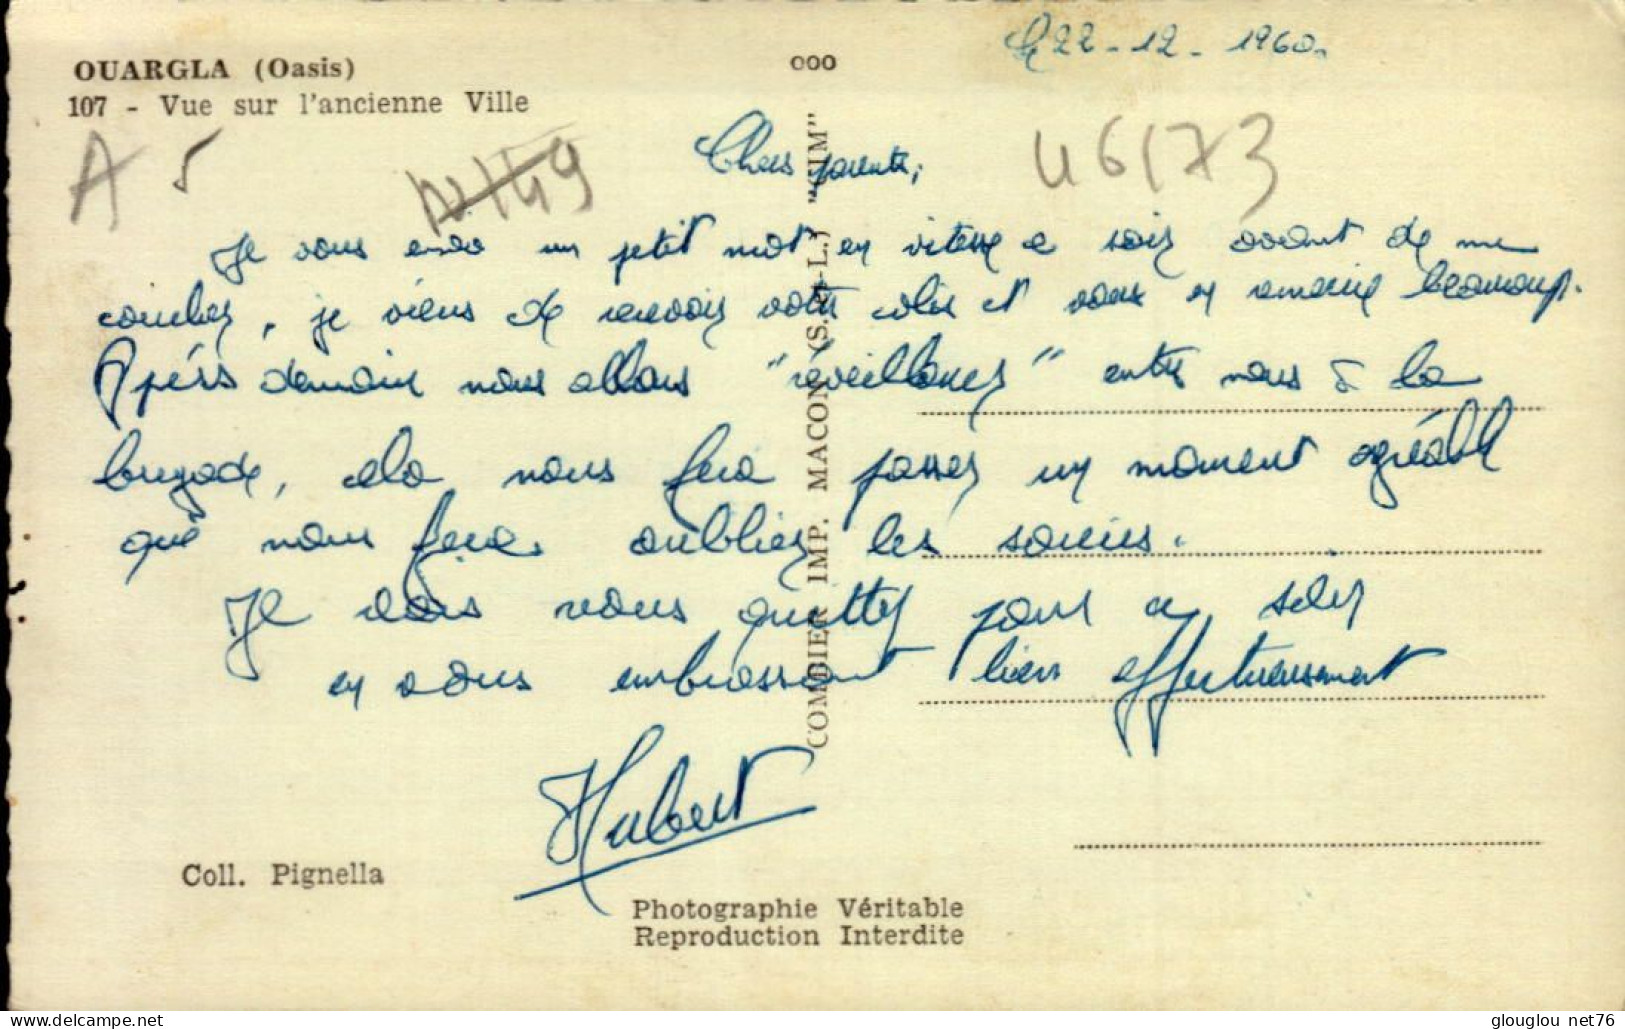 Le 22-12-1960.
OUARGLA (Oasis)
107 - Vue sur l'ancienne Ville
ooo
A 5
46173
Chers parents,
Je vous envoi un petit mot en vitesse ce soir avant de me
coucher, je viens de recevoir votre colis et vous en remercie beaucoup.
Après demain nous allons "réveilloner" entre nous à la
brigade, cela nous fera passer un moment agréable
qui nous fera oublier les soucis.
Je vais vous quitter pour ce soir
en vous embrassant bien affectueusement
Hubert
COMBIER IMP. MACON (S.-&-L.) "CIM"
Coll. Pignella
Photographie Véritable
Reproduction Interdite
glouglou net76